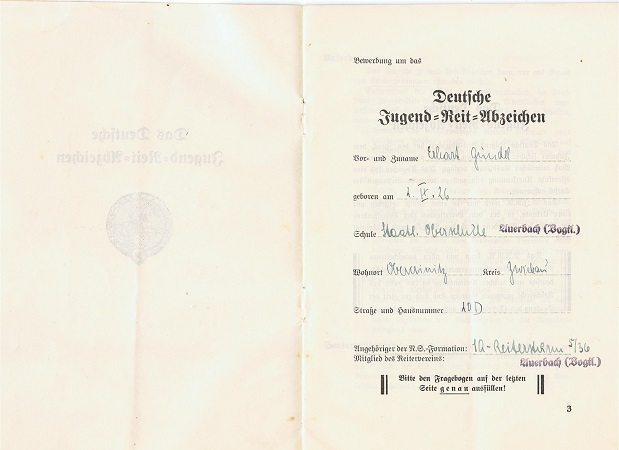 Bewerbung um das
Deutsche
Jugend=Reit=Abzeichen
Vor- und Zuname Erhart Gündel
geboren am 2. IX. 26
Schule Staatl. Oberschule Auerbach (Vogtl.)
Wohnort Obercrinitz Kreis Zwickau
Straße und Hausnummer 20 D
Angehöriger der N.S.-Formation: SA-Reitersturm 5/36
Mitglied des Reitervereins: Auerbach (Vogtl.)
Bitte den Fragebogen auf der letzten
Seite genau ausfüllen!
3